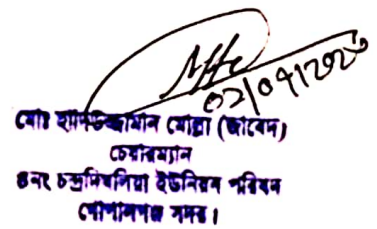 ০২/০৭/২০২৩
মোঃ হাফিজুজ্জামান মোল্লা (জাবেদ)
চেয়ারম্যান
৪নং চন্দ্রদিঘলিয়া ইউনিয়ন পরিষদ
গোপালগঞ্জ সদর।